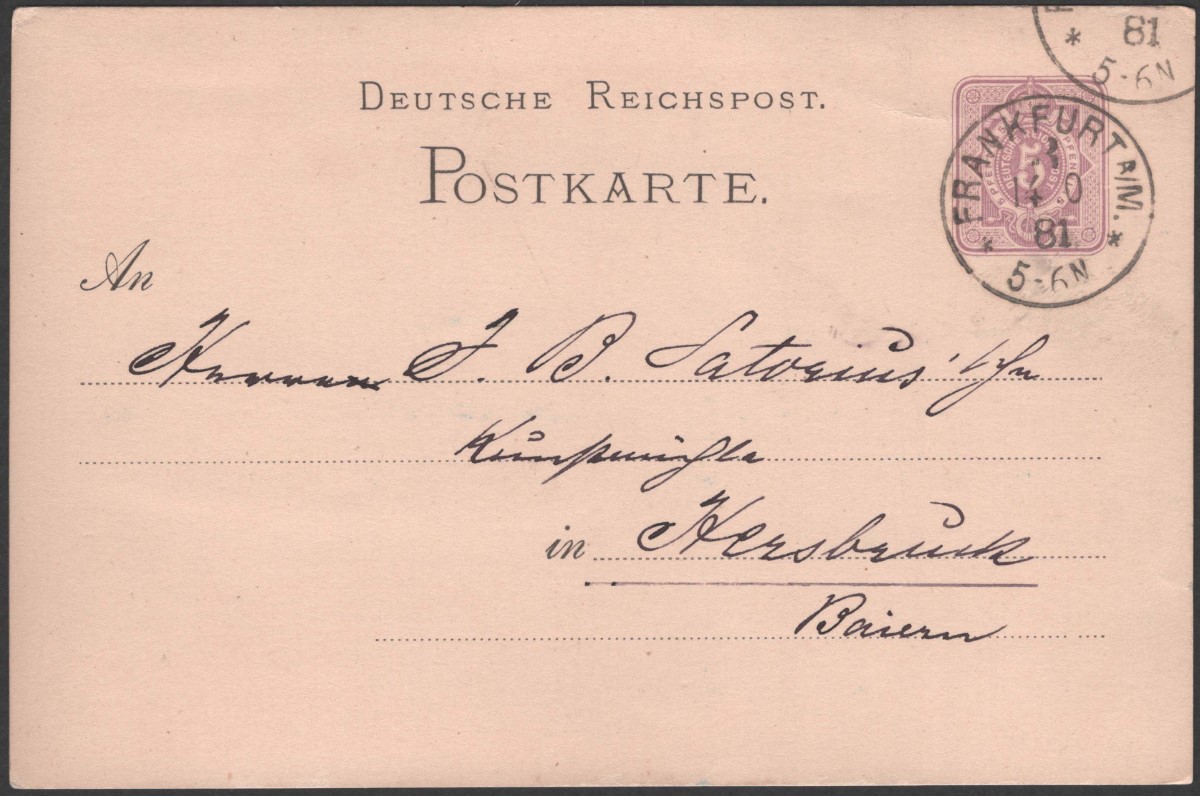 81
* 5-6N
DEUTSCHE REICHSPOST.
POSTKARTE.
FRANKFURT A/M.
14 0
81
* 5-6N *
5
An
Herren J. B. Satorius'
Kunstmühle
in Hersbruck
Baiern